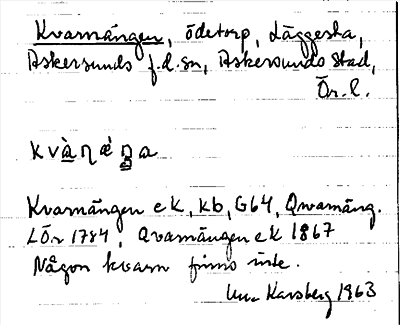 Kvarnängen, ödetorp, Läggesta,
Askersunds f.d.sn, Askersunds stad,
Ör. l.
Kvarnängen ek, kb, G64, Qwarnäng.
LÖr 1784, Qvarnängen ek 1867
Någon kvarn finns inte.
Karsberg 1963